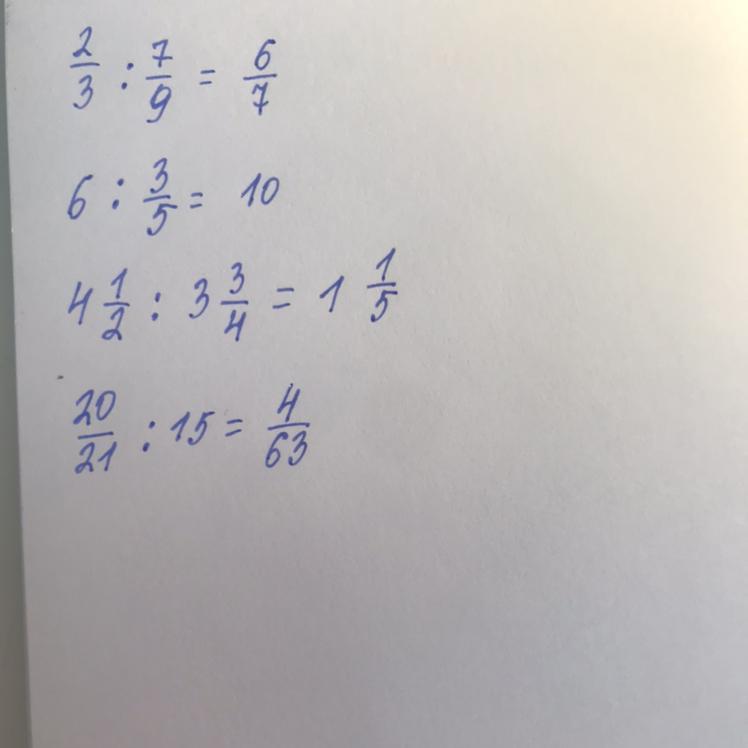 2/3 : 7/9 = 6/7
6 : 3/5 = 10
4 1/2 : 3 3/4 = 1 1/5
20/21 : 15 = 4/63